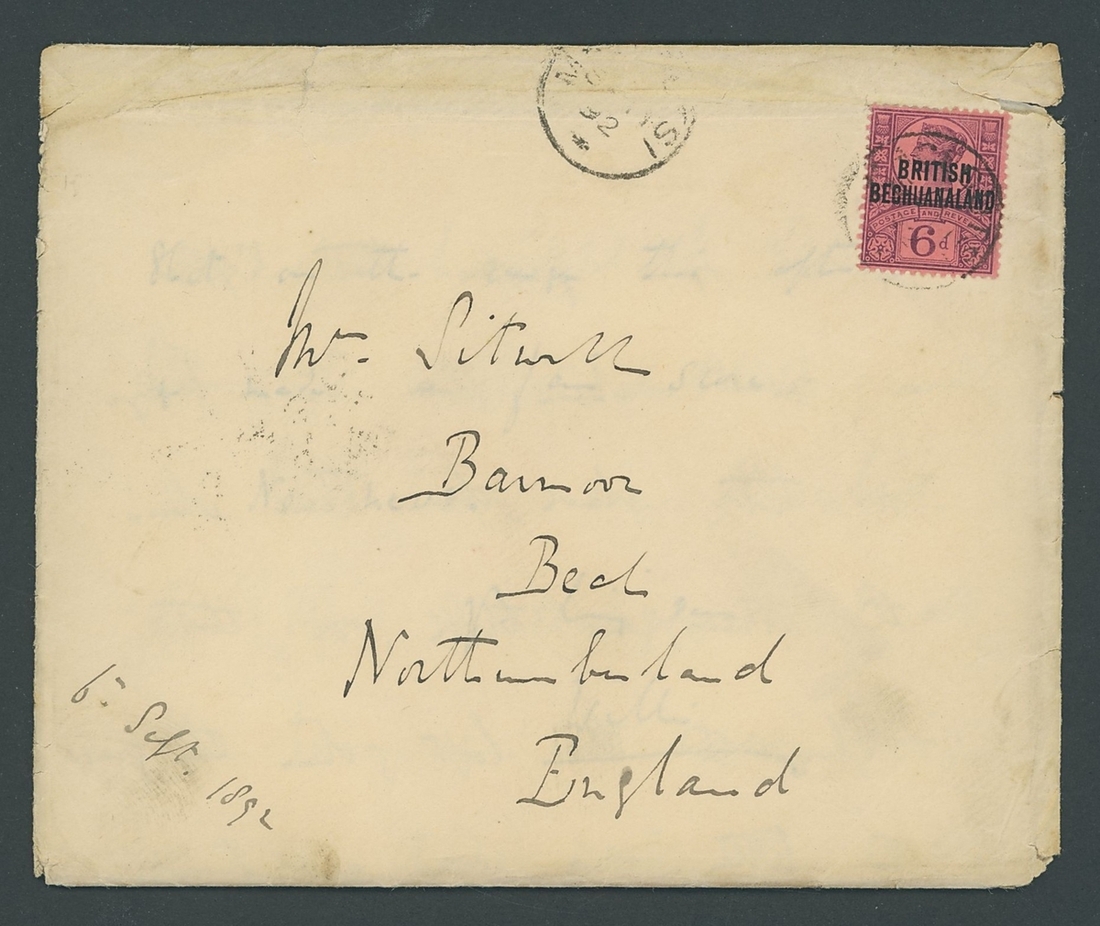 BRITISH
BECHUANALAND
POSTAGE AND REVENUE
6d
Mrs. Sitwell
Barmoor
Beal
Northumberland
England
6- Sept. 1892